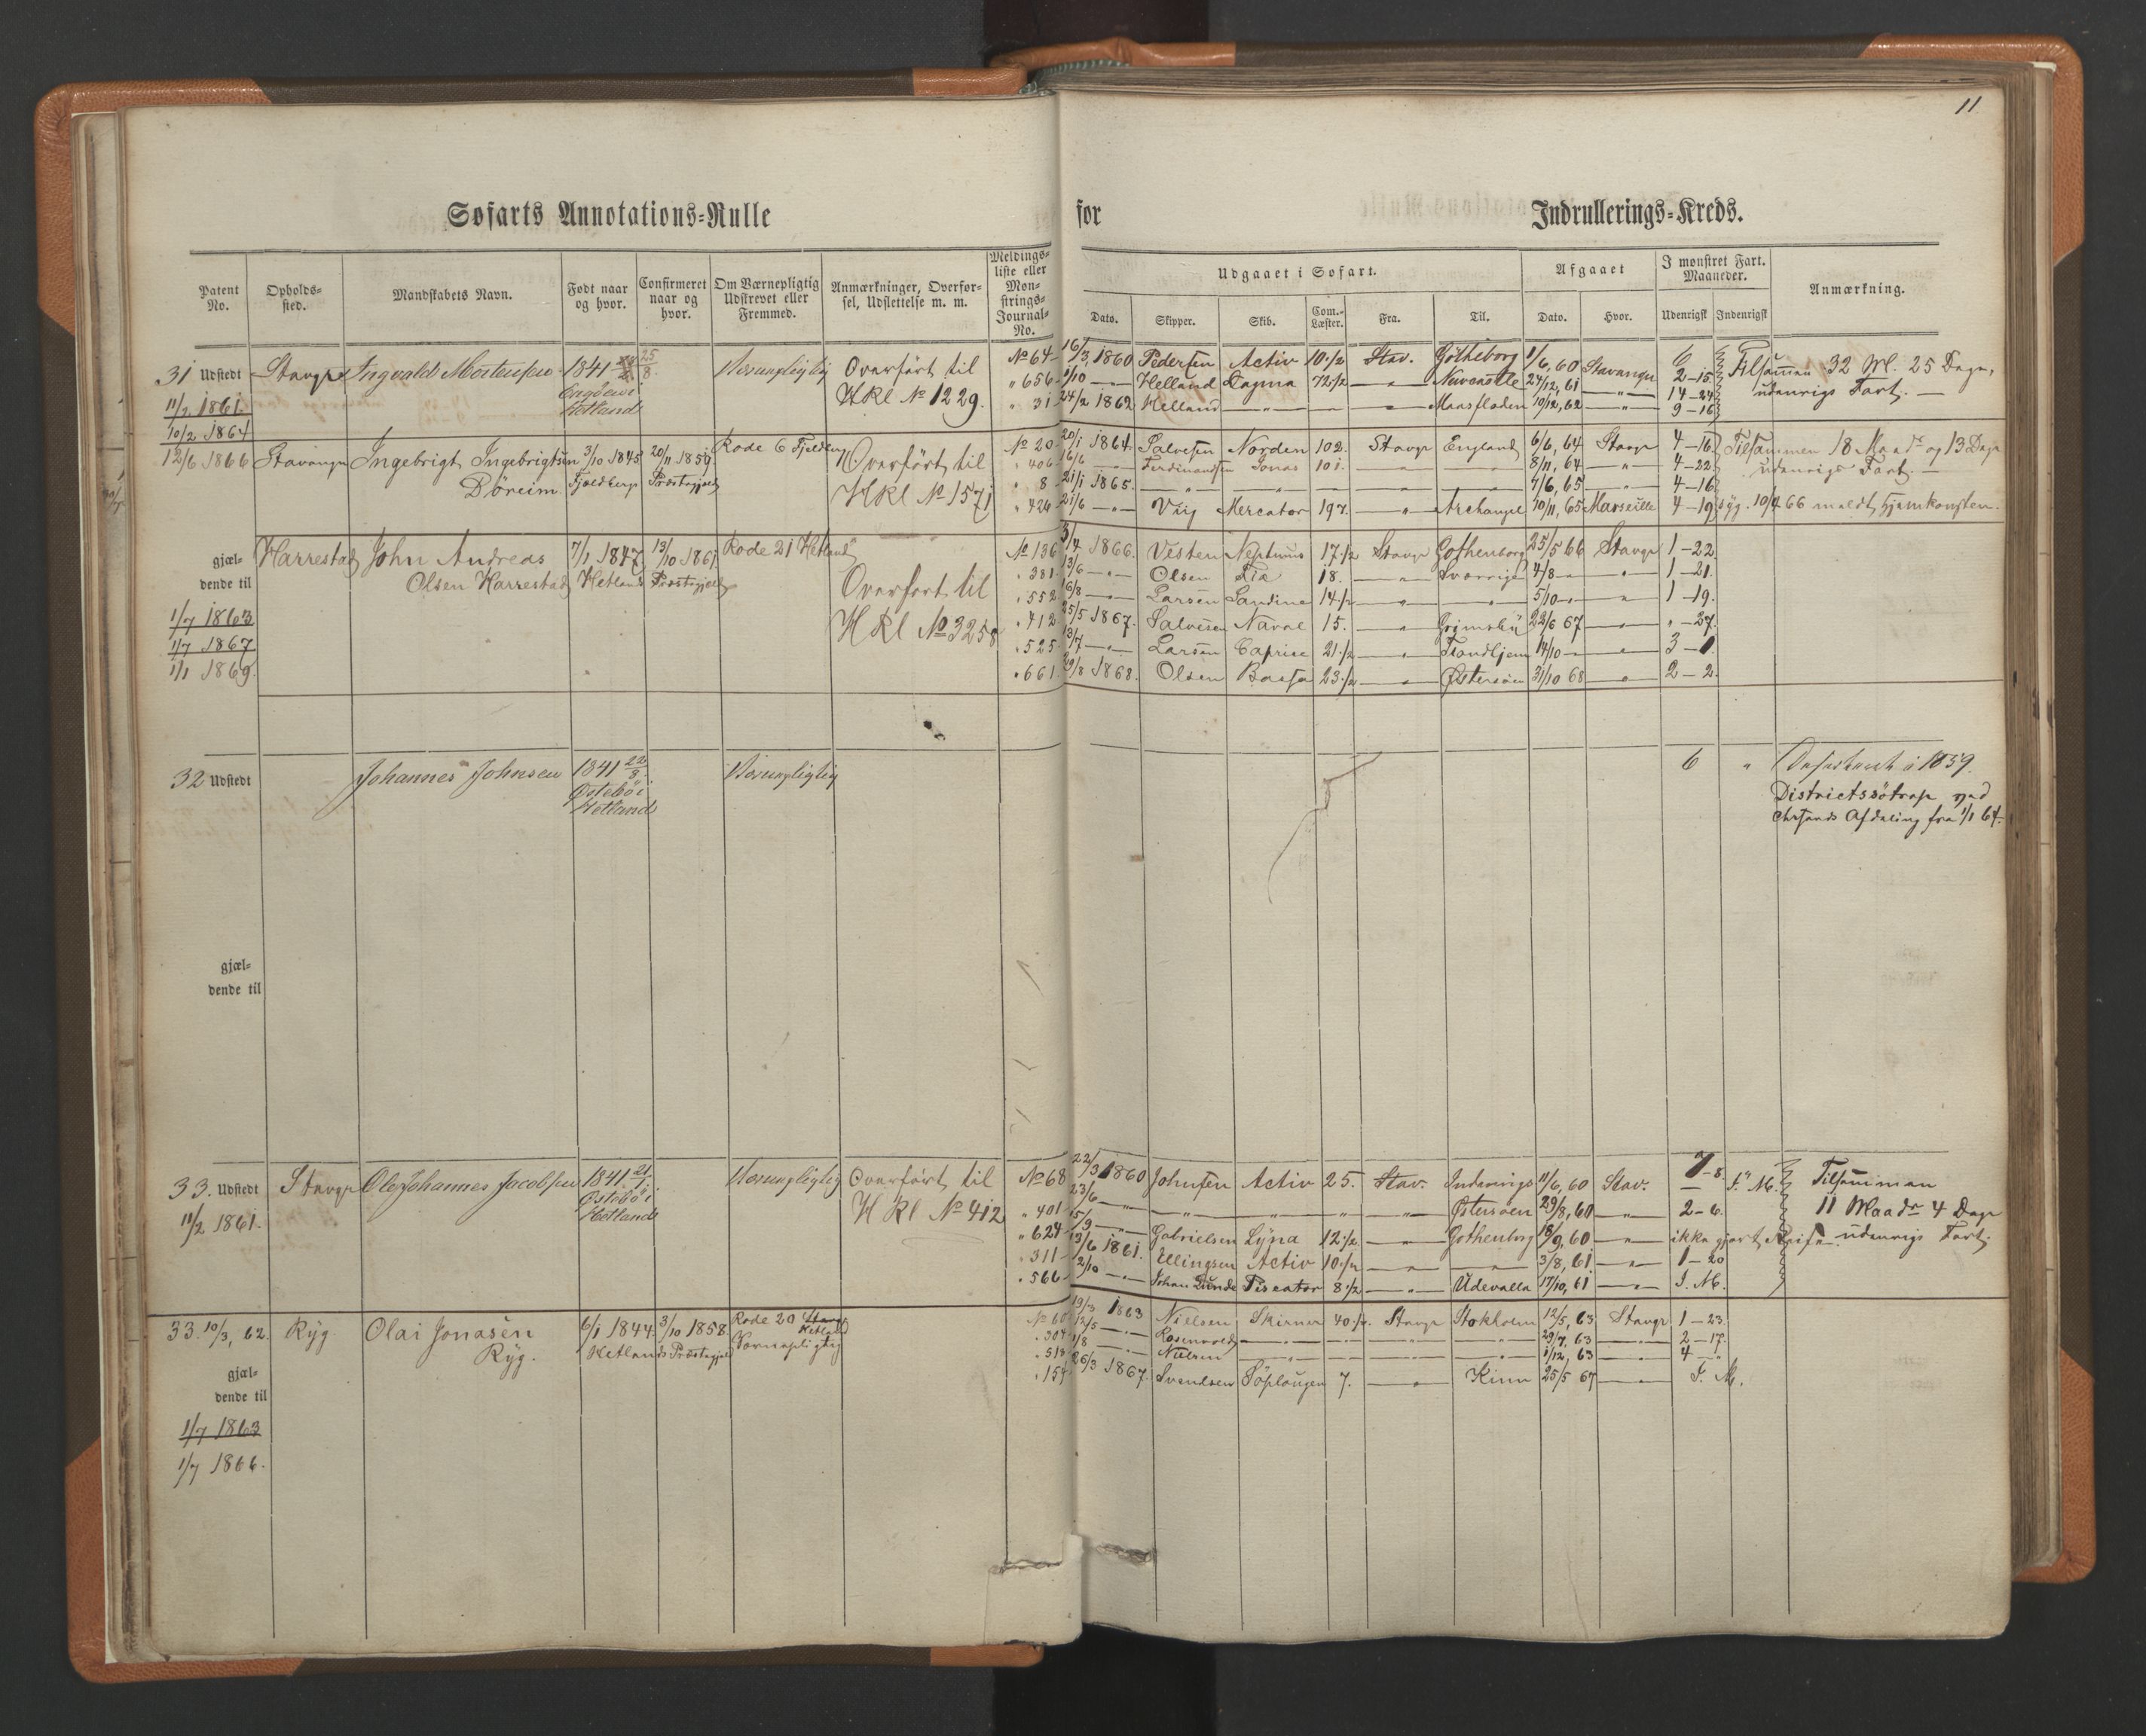 11
Søfarts Annotations=Rulle for Indrullerings=Kreds.
Patent No.
Opholds=sted.
Mandskabets Navn.
Født naar og hvor.
Confirmeret naar og hvor.
Om Værnepligtig Udskrevet eller Fremmed.
Anmærkninger, Overfør=sel, Udslettelse m. m.
Meldings=liste eller Mon=strings=Journal=No.
Udgaaet i Søfart.
Dato. Skipper. Skib. Com.=Læster. Fra. Til.
Afgaaet
Dato. Hvor.
I mønstret Fart. Maaneder.
Udenrigst Indenrigst
Anmærkning.
31 Udstedt Stavgr Ingvald Mortensen 1841 25/8 Værnepligtig Overført til No 64 16/3 1860 Pedersen Activ 10 1/2 Stav. Gøtheborg 1/6, 60 Stavanger 6 Tilsammen 32 M. 25 Dage,
11/2 1861. Hetland HRl No 1229. " 656 1/10 — " — Helland Dagma 72 1/2 — " — Newcastle 24/12, 61 — " — 2-15 udenrigs Fart. —
10/2 1864 " 31 24/2 1862 Helland — " — — " — Maasfloden 10/12, 62 — " — 14-24
9-16
12/6 1866 Stavanger Ingebrigt Ingebrigtsen 3/10 1845 20/11 1859. Rode 6 Fjelberg Overført til No 20 20/1 1864. Salvesen Norden 102. Stavgr England 6/6, 64 Stavgr 4-16 Tilsammen 18 Maadr og 13 Dage
Døreim Fjeldberg Præstegjeld HRl No 1571 " 406 16/6 — " — Ferdinandsen Jonas 101. — " — 8/11, 64 — " — 4-22 udenrigs Fart. —
" 8 21/1 1865. — " — — " — 7/6, 65 4-16
" 424 21/6 — " — Viig Mercator 197. — " — Archangel 10/11, 65 Marseille 4-19 syg. 10/4 66 meldt Hjemkomsten.
gjæl=
dende til
1/7 1863
1/7 1867
1/1 1869.
Harrestad John Andreas 7/1 1847 13/10 1861 Rode 21 Hetland No 136 3/4 1866. Vesten Neptunus 17 1/2 Stavgr Gothenborg 25/5 66 Stavgr 1-22
Olsen Harrestad Hetland Præstegjeld Overført til " 381 13/6 — " — Olsen Fix 18. — " — Sverrige 4/8 — " — 1-21.
HRl No 3258 " 552 16/8 — " — Larsen Sandine 14 1/2 — " — 5/10 — " — 1-19.
" 412 25/5 1867. Salvesen Naval 15. — " — Grimsby 22/6 67 — " — " -27.
" 525 13/7 — " — Larsen Caprice 21 1/2 — " — Trondhjem 14/10 — " — 3-1
" 661 29/8 1868. Olsen 23 1/2 — " — Østersøen 31/10 68 — " — 2-2
32 Udstedt Johannes Johnsen 1841 22/8 Værnepligtig 6 " 1859.
Østebø i Districtssøtrop ved
Hetland Chrsands Afdeling fra 1/1 64.
gjæl=
dende til
33. Udstedt Stavgr Ole Johannes Jacobsen 1841 21/1 Værnepligtig Overført til No 68 22/3 1860 Johnsen Activ 25. Stav. Indenrigs 11/6, 60 Stav. 7-8. I." M. Tilsamman
11/2 1861. Østebø i HRl No 412 " 401 23/6 — " — — " — Østersøen 29/8, 60 — " — 2-6. 11 Maadr 4 Dage
Hetland " 624 15/9 — " — Gabrielsen Lyna 12 1/2 — " — Gothenborg 18/9, 60 — " — ikke gjort Reise udenrigs Fart.
" 311 13/6 1861. Ellingsen Activ 10 1/2 — " — 3/8, 61 — " — 1-20
" 566 2/10 — " — Johan Lunde Piscator 8 1/2 — " — Udevalla 17/10, 61 — " — I. M.
33. 10/3, 62. Ryg. Olai Jonasen 6/1 1844. 3/10 1858. Rode 20 Hetland No 60 19/3 1863 Nielsen Skirner 40 1/2. Stavgr Stokholm 12/5, 63 Stavgr 1-23
Ryg. Hetlands Præstegjeld Værnepligtig " 304 12/5 — " — Rosenvold — " — 29/7, 63 — " — 2-17.
" 513 1/8 — " — Nielsen — " — 1/12, 63 — " — 4 "
" 154 26/3 1867. Svendsen 7. — " — Kinn 25/5 67 — " — I. M.
gjæl=
dende til
1/7 1863
1/7 1866.